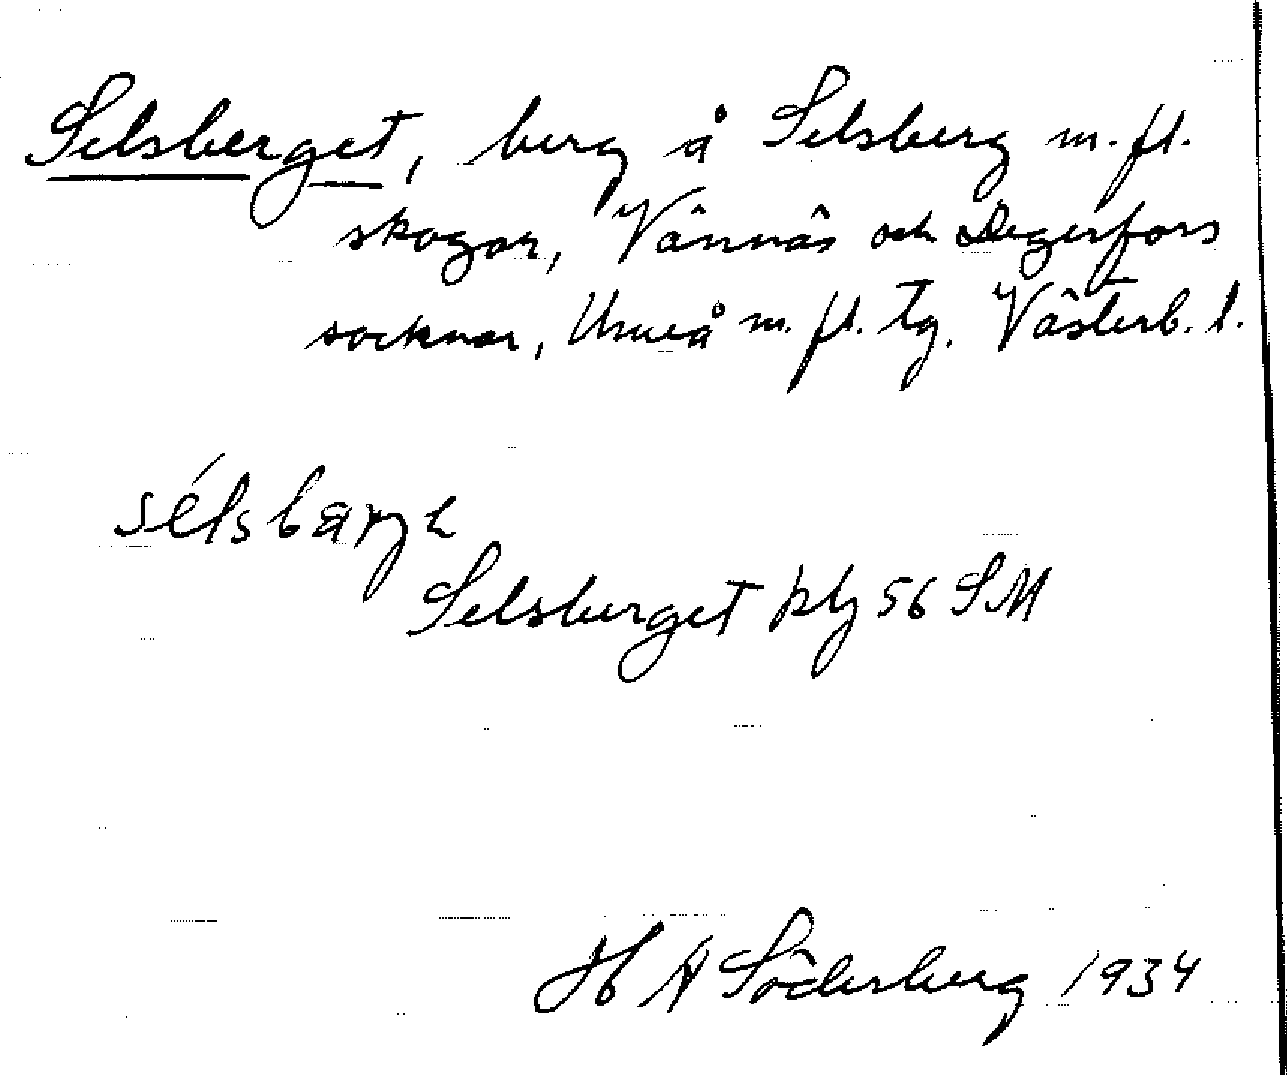 Selsberget, berg å Selsberg m.fl.
skogar, Vännäs och Degerfors
socknar, Umeå m.fl. tg. Västerb. l.
Selsberget 56 SM
H A Söderberg 1934